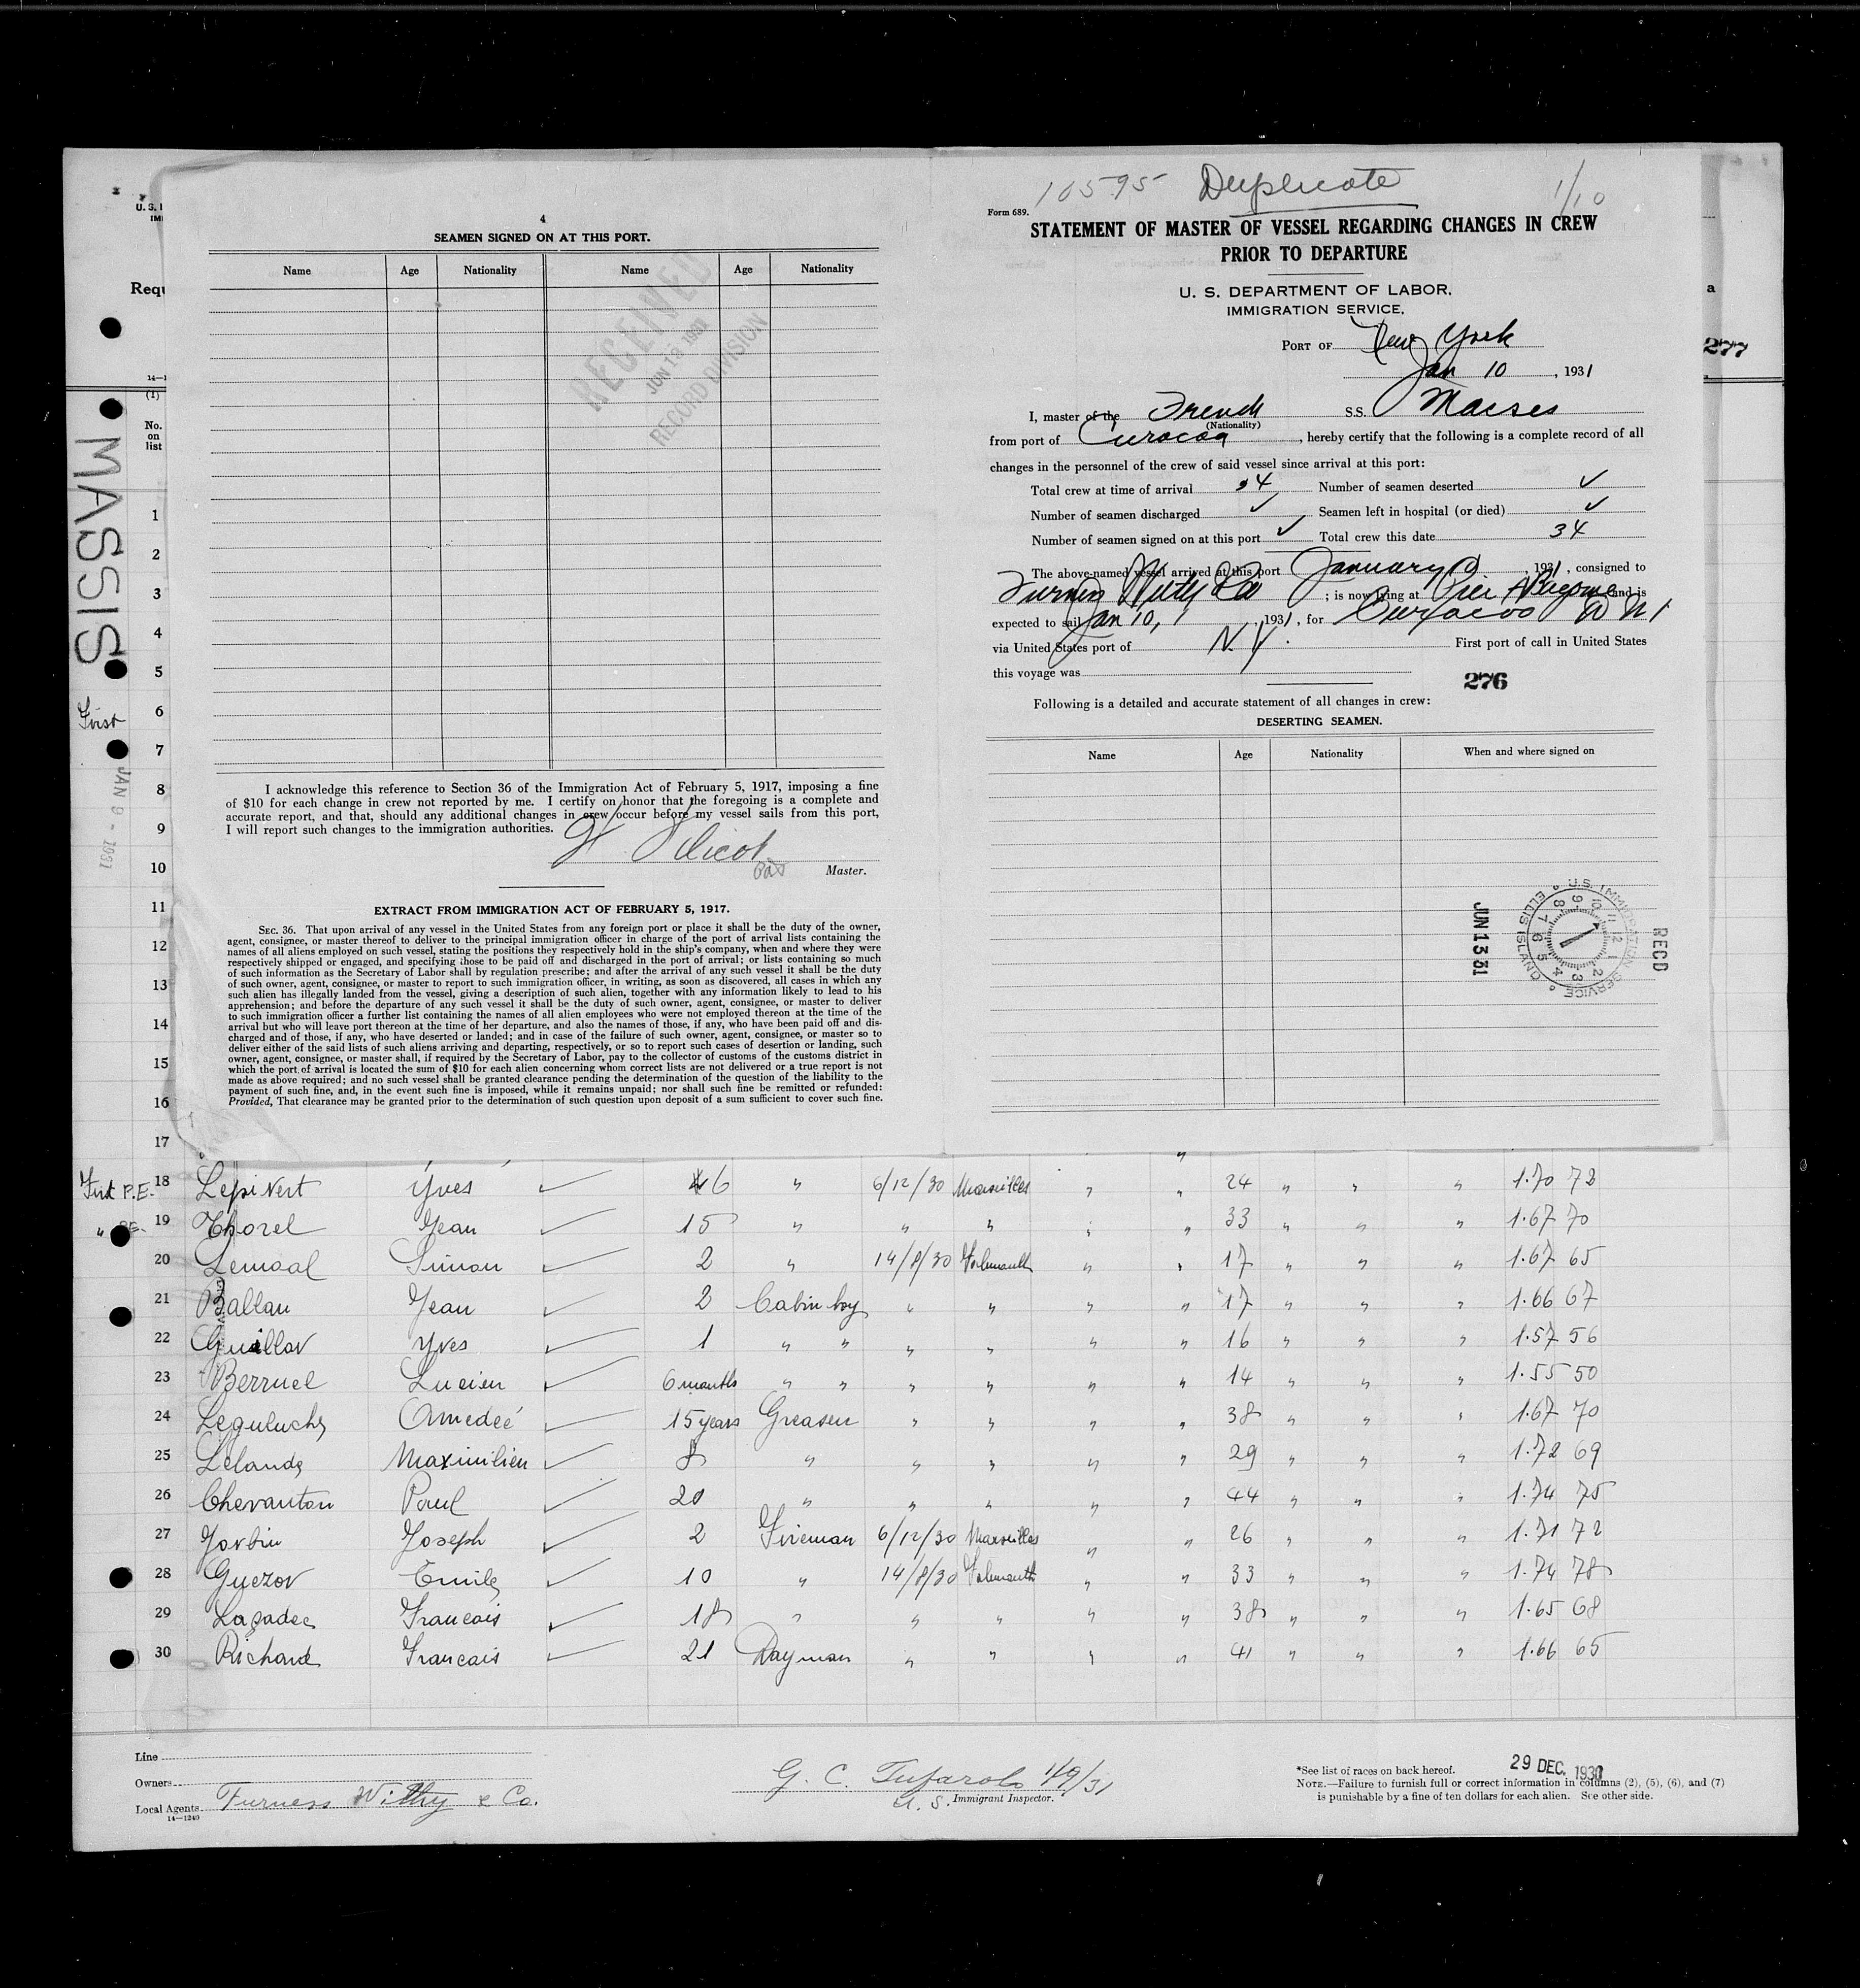 10595 Duplicate 1/10
U. S.
Requ
277
MASSIS
First
JAN 9 - 1931
(1)
No.
on
list
1
2
3
4
5
6
7
8
9
10
11
12
13
14
15
16
17
4
SEAMEN SIGNED ON AT THIS PORT.
Name Age Nationality Name Age Nationality
RECEIVED
JUN 13 1931
RECORD DIVISION
I acknowledge this reference to Section 36 of the Immigration Act of February 5, 1917, imposing a fine
of $10 for each change in crew not reported by me. I certify on honor that the foregoing is a complete and
accurate report, and that, should any additional changes in crew occur before my vessel sails from this port,
I will report such changes to the immigration authorities.
Master.
EXTRACT FROM IMMIGRATION ACT OF FEBRUARY 5, 1917.
SEC. 36. That upon arrival of any vessel in the United States from any foreign port or place it shall be the duty of the owner,
agent, consignee, or master thereof to deliver to the principal immigration officer in charge of the port of arrival lists containing the
names of all aliens employed on such vessel, stating the positions they respectively hold in the ship's company, when and where they were
respectively shipped or engaged, and specifying those to be paid off and discharged in the port of arrival; or lists containing so much
of such information as the Secretary of Labor shall by regulation prescribe; and after the arrival of any such vessel it shall be the duty
of such owner, agent, consignee, or master to report to such immigration officer, in writing, as soon as discovered, all cases in which any
such alien has illegally landed from the vessel, giving a description of such alien, together with any information likely to lead to his
apprehension; and before the departure of any such vessel it shall be the duty of such owner, agent, consignee, or master to deliver
to such immigration officer a further list containing the names of all alien employees who were not employed thereon at the time of the
arrival but who will leave port thereon at the time of her departure, and also the names of those, if any, who have been paid off and dis-
charged and of those, if any, who have deserted or landed; and in case of the failure of such owner, agent, consignee, or master so to
deliver either of the said lists of such aliens arriving and departing, respectively, or so to report such cases of desertion or landing, such
owner, agent, consignee, or master shall, if required by the Secretary of Labor, pay to the collector of customs of the customs district in
which the port of arrival is located the sum of $10 for each alien concerning whom correct lists are not delivered or a true report is not
made as above required; and no such vessel shall be granted clearance pending the determination of the question of the liability to the
payment of such fine, and, in the event such fine is imposed, while it remains unpaid; nor shall such fine be remitted or refunded:
Provided, That clearance may be granted prior to the determination of such question upon deposit of a sum sufficient to cover such fine.
Form 689.
STATEMENT OF MASTER OF VESSEL REGARDING CHANGES IN CREW
PRIOR TO DEPARTURE
U. S. DEPARTMENT OF LABOR,
IMMIGRATION SERVICE,
PORT OF New York
Jan 10, 1931
I, master of the French S.S. Massis
(Nationality)
from port of Curacoa, hereby certify that the following is a complete record of all
changes in the personnel of the crew of said vessel since arrival at this port:
Total crew at time of arrival 34 Number of seamen deserted ✓
Number of seamen discharged ✓ Seamen left in hospital (or died) ✓
Number of seamen signed on at this port ✓ Total crew this date 34
The above-named vessel arrived at this port January 9, 1931, consigned to
Furness Withy & Co; is now lying at Pier A Bayonne and is
expected to sail Jan 10, 1931, for Curacoa D W I
via United States port of N. Y. First port of call in United States
this voyage was
276
Following is a detailed and accurate statement of all changes in crew:
DESERTING SEAMEN.
Name Age Nationality When and where signed on
U.S. IMMIGRATION SERVICE ELLIS ISLAND
RECD
JUN 13 31
First P.E. 18 Lepivert Yves ✓ 6 " 6/12/30 Marseilles " " 24 " " " 1.70 72
" P.E. 19 Thorel Jean ✓ 15 " " " " " 33 " " " 1.67 70
20 Lemoal Simon ✓ 2 " 14/8/30 Falmouth " " 17 " " " 1.67 65
21 Ballau Jean ✓ 2 Cabin boy " " " " 17 " " " 1.66 67
22 Guillov Yves ✓ 1 " " " " " " 16 " " " 1.57 56
23 Berruel Lucien ✓ 6 months " " " " " " 14 " " " 1.55 50
24 Leguluche Amedeé ✓ 15 years Greaser " " " " 38 " " " 1.67 70
25 Lelande Maximilien ✓ 8 " " " " " 29 " " " 1.72 69
26 Chevanton Paul ✓ 20 " " " " " 44 " " " 1.74 75
27 Jorbin Joseph ✓ 2 Fireman 6/12/30 Marseilles " " 26 " " " 1.71 72
28 Guezov Emile ✓ 10 " 14/8/30 Falmouth " " 33 " " " 1.74 78
29 Lazadec Francois ✓ 18 " " " " " 38 " " " 1.65 68
30 Richard Francois ✓ 21 Dayman " " " " 41 " " " 1.66 65
Line
Owners
Local Agents Furness Withy & Co.
14—1240
G. C. Tufarolo 1/9/31
U. S. Immigrant Inspector.
29 DEC. 1930
*See list of races on back hereof.
NOTE.—Failure to furnish full or correct information in columns (2), (5), (6), and (7)
is punishable by a fine of ten dollars for each alien. See other side.